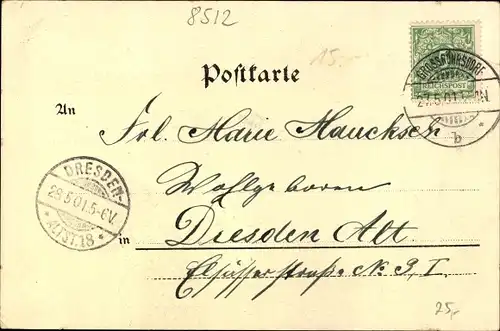 8512
15.-
GROSSRÖHRSDORF
REICHSPOST
27.5.01.
b
Postkarte
An
Frl. Marie Haucksch
Wohlgeboren
in Dresden Alt.
Elsässerstraße No 9, I.
DRESDEN-
28.5.01.5-6V.
* ALTST.18 *
25,-